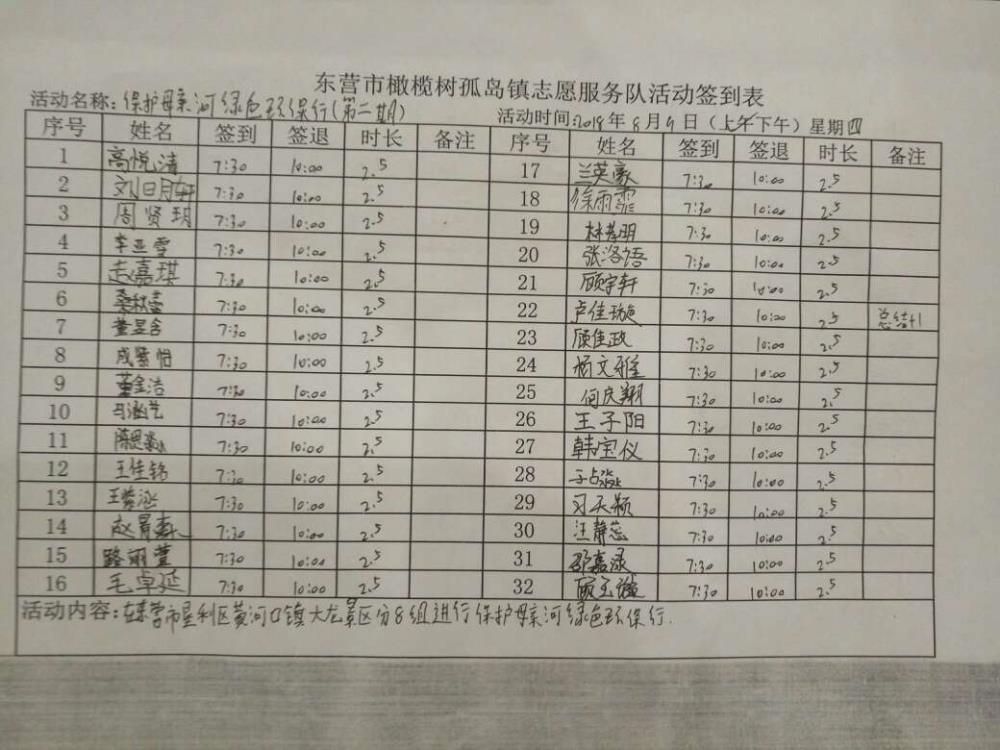 东营市橄榄树孤岛镇志愿服务队活动签到表
活动名称：保护母亲河绿色环保行(第二期)
活动时间:2018年8月9日（上午下午）星期四
序号 姓名 签到 签退 时长 备注 序号 姓名 签到 签退 时长 备注
1 高悦清 7:30 10:00 2.5 17 兰英豪 7:30 10:00 2.5
2 刘日月轩 7:30 10:00 2.5 18 徐雨霏 7:30 10:00 2.5
3 周贤玥 7:30 10:00 2.5 19 林孝明 7:30 10:00 2.5
4 李亚雪 7:30 10:00 2.5 20 张洛语 7:30 10:00 2.5
5 孟嘉琪 7:30 10:00 2.5 21 顾宇轩 7:30 10:00 2.5
6 桑秋蕾 7:30 10:00 2.5 22 卢佳璇 7:30 10:00 2.5 总结1
7 董昱含 7:30 10:00 2.5 23 顾佳政 7:30 10:00 2.5
8 成紫怡 7:30 10:00 2.5 24 杨文雅 7:30 10:00 2.5
9 董金浩 7:30 10:00 2.5 25 何庆翔 7:30 10:00 2.5
10 马涵艺 7:30 10:00 2.5 26 王子阳 7:30 10:00 2.5
11 陈思淼 7:30 10:00 2.5 27 韩宝仪 7:30 10:00 2.5
12 王佳铭 7:30 10:00 2.5 28 于占淼 7:30 10:00 2.5
13 王梦泌 7:30 10:00 2.5 29 习天颖 7:30 10:00 2.5
14 赵景森 7:30 10:00 2.5 30 汪静蕊 7:30 10:00 2.5
15 路翊萱 7:30 10:00 2.5 31 邵嘉渌 7:30 10:00 2.5
16 毛卓延 7:30 10:00 2.5 32 顾玉 7:30 10:00 2.5
活动内容：在东营市垦利区黄河口镇大龙景区分8组进行保护母亲河绿色环保行.